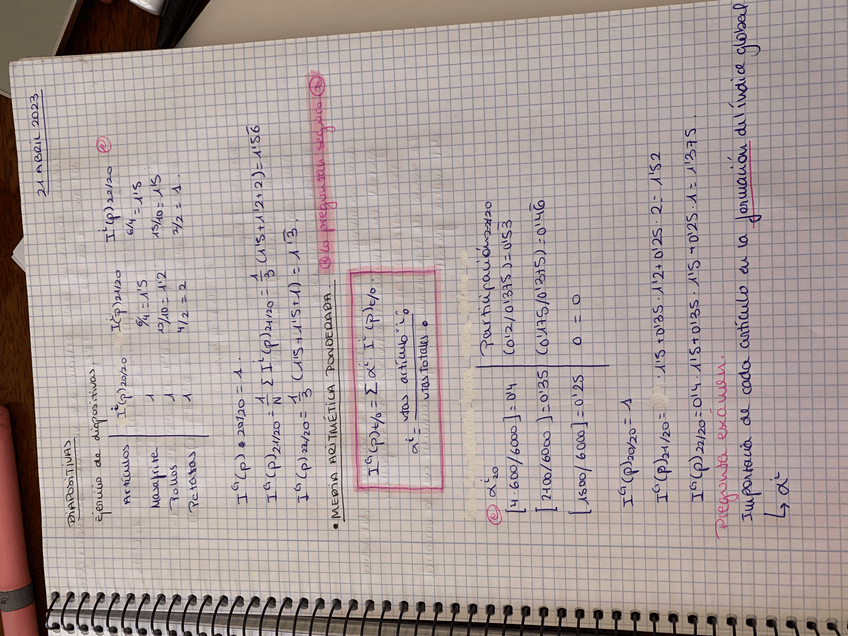 21 ABRIL 2023
DIAPOSITIVAS
Ejercicio de diapositivas.
Artículos Iⁱ(p)20/20 Iⁱ(p)21/20 Iⁱ(p)22/20
Navajita 1 6/4 = 1'5 6/4 = 1'5
Pollos 1 12/10 = 1'2 15/10 = 1'5
Patatas 1 4/2 = 2 2/2 = 1.
Iᴳ(p)20/20 = 1.
Iᴳ(p)21/20 = 1/N Σ Iⁱ(p)21/20 = 1/3 (1'5+1'2+2) = 1'56
Iᴳ(p)22/20 = 1/3 (1'5+1'5+1) = 1'3.
• MEDIA ARITMÉTICA PONDERADA. lo preguntan seguro
Iᴳ(p)t/0 = Σ αⁱ · Iⁱ(p)t/0
αⁱ = vtas artículo "i"0 / vtas totales 0
αⁱ20 Participación 22/20
[4·600/6000] = 0'4 (0'2/0'375) = 0'53
[2100/6000] = 0'35 (0'175/0'375) = 0'46
[1500/6000] = 0'25 0 = 0
Iᴳ(p)20/20 = 1
Iᴳ(p)21/20 = · 1'5 + 0'35 · 1'2 + 0'25 · 2 = 1'52
Iᴳ(p)22/20 = 0'4 · 1'5 + 0'35 · 1'5 + 0'25 · 1 = 1'375.
Pregunta exámen.
Importancia de cada artículo en la formación del índice global
↳ αⁱ